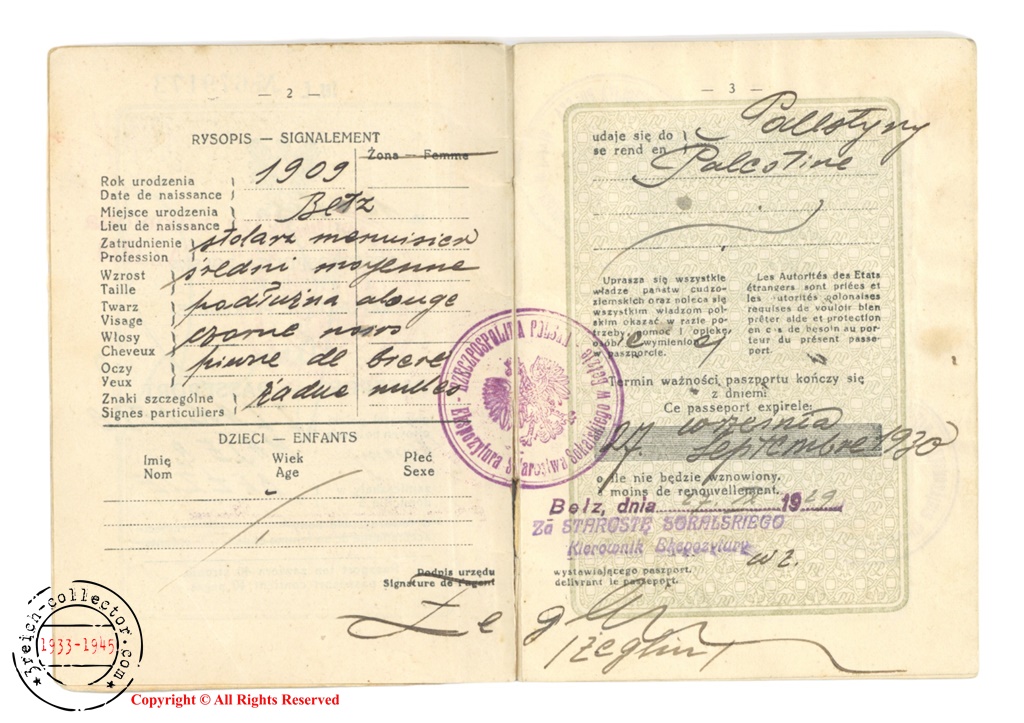 — 2 —
RYSOPIS — SIGNALEMENT
Żona — Femme
Rok urodzenia
Date de naissance
1909
Miejsce urodzenia
Lieu de naissance
Bełz
Zatrudnienie
Profession
stolarz menuisier
Wzrost
Taille
średni moyenne
Twarz
Visage
podłużna alonge
Włosy
Cheveux
czarne noirs
Oczy
Yeux
piwne de biere
Znaki szczególne
Signes particuliers
żadne nulles
DZIECI — ENFANTS
Imię Wiek Płeć
Nom Age Sexe
Podpis urzędu
Signature de l'agent
— 3 —
udaje się do
se rend en
Palestyny
Palestine
Uprasza się wszystkie
władze państw cudzo-
ziemskich oraz poleca się
wszystkim władzom pol-
skim okazać w razie po-
trzeby pomoc i opiekę
osobie wymienionej
w paszporcie.
Les Autorités des Etats
étrangers sont priées et
les autorités polonaises
requises de vouloir bien
prêter aide et protection
en cas de besoin au por-
teur du présent passe-
port.
Termin ważności paszportu kończy się
z dniem
Ce passeport expire le:
września
27. Septembre 1930
o ile nie będzie wznowiony.
à moins de renouvellement.
Bełz, dnia 27. IX 1929
Za STAROSTĘ SOKALSKIEGO
Kierownik Ekspozytury
wz.
wystawiającego paszport.
délivrant le passeport.
RZECZPOSPOLITA POLSKA
Ekspozytura Starostwa Sokalskiego w Bełzie
3reich-collector.com
1933-1945
Copyright © All Rights Reserved